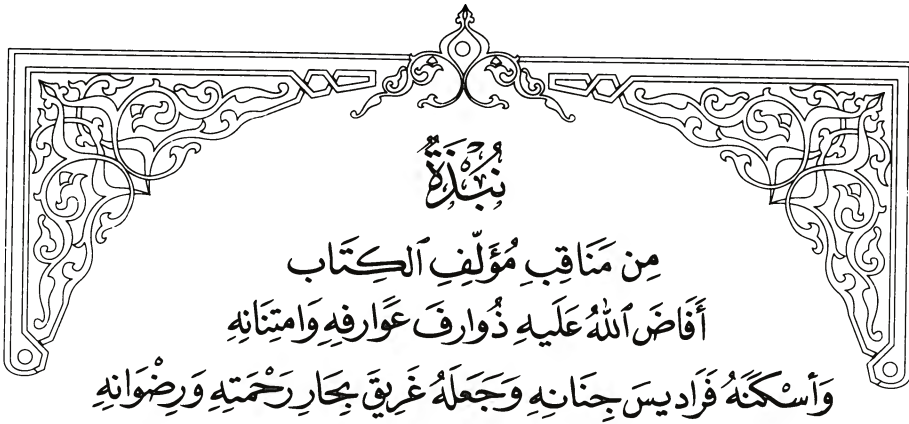 نُبْذَةٌ
مِن مَنَاقِبِ مُؤَلِّفِ ٱلكِتَاب
أَفَاضَ ٱللهُ عَلَيهِ ذُوارفَ عَوَارفِهِ وَامتِنَانِهِ
وَأَسْكَنَهُ فَرَاديسَ جِنَانِهِ وَجَعَلَهُ غَرِيقَ بِحَارِ رَحْمَتِهِ وَرِضْوَانِهِ